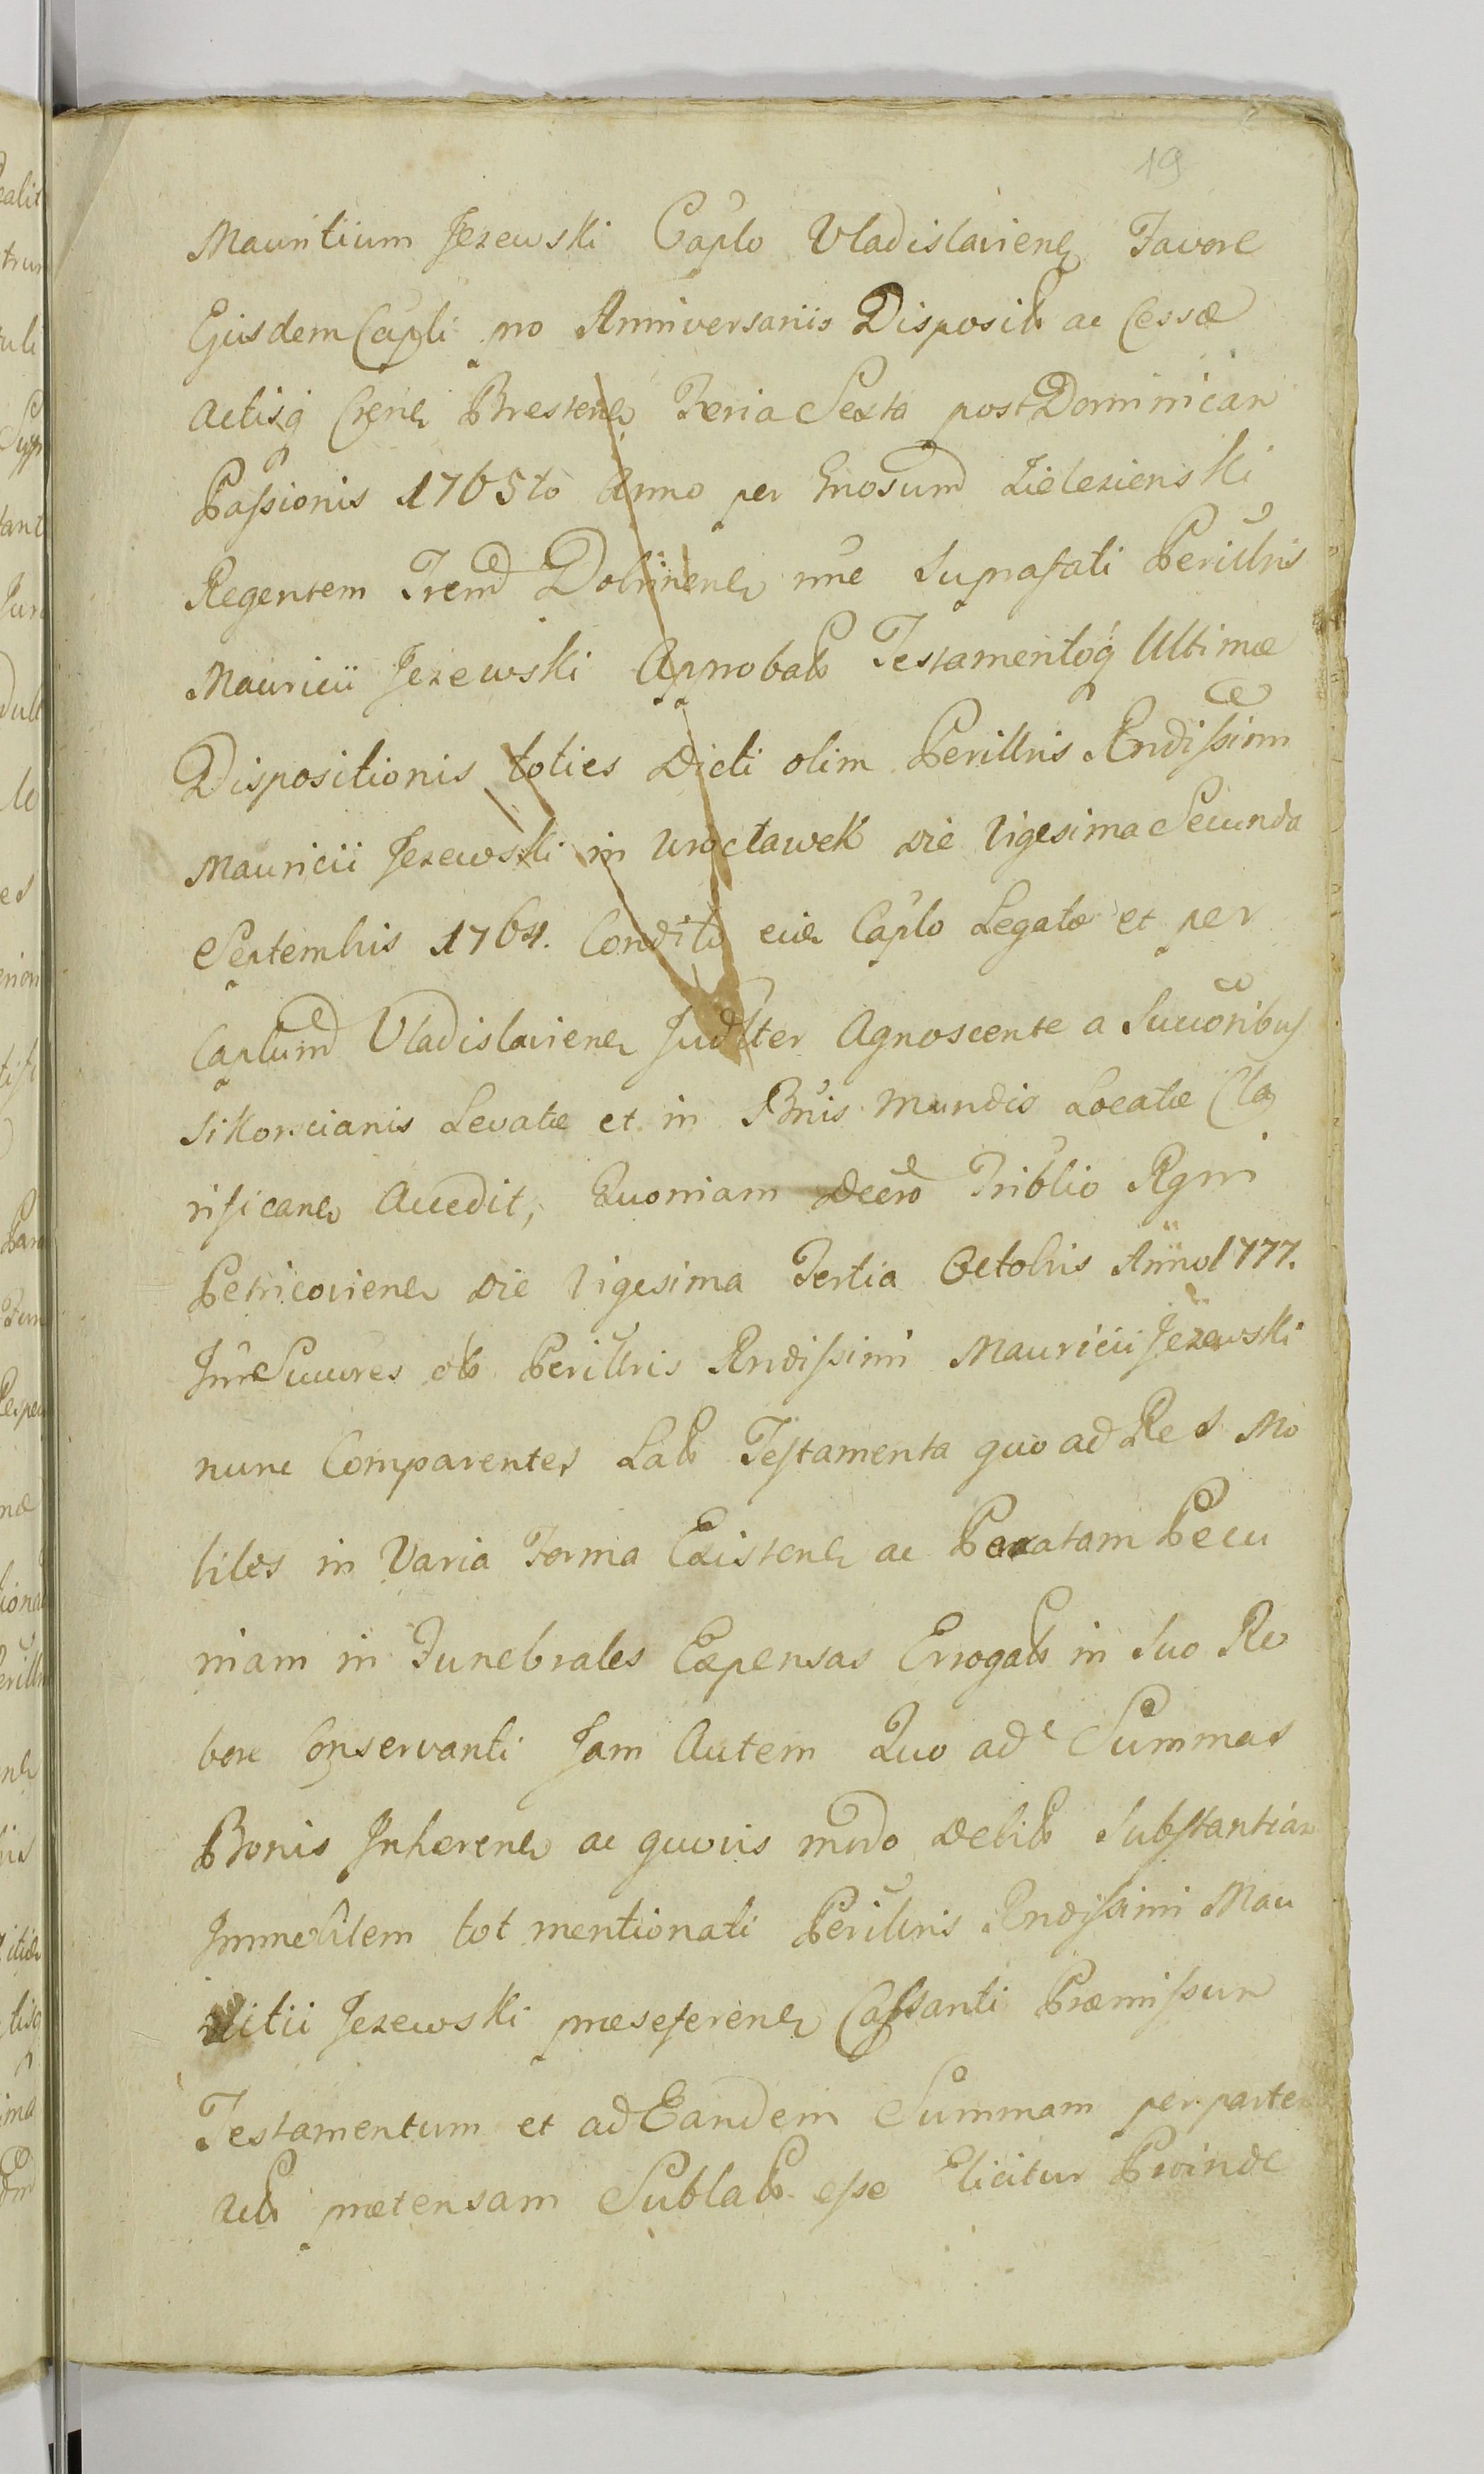 19
Mauritium Jezewski Caplo Vladislaviens Favore
Ejusdem Capli pro Anniversariis Disposit ac Cessæ
actisq Crens Brestens Feria Sexta post Dominicam
Passionis 1765to Anno per Gnosum Zielezienski
Regentem Trem Dobrinens nne Suprafati Perillris
Mauricii Jezewski Approbat Testamentoq Ultimæ
Dispositionis toties Dicti olim Perillris Rndissimi
Mauricii Jezewski in Wrocławek die Vigesima Secunda
Septembris 1764. Condito eid Caplo Legatæ et per
Caplum Vladislaviens Judlter Agnoscente a Succoribus
Sikorscianis Levatæ et in Bnis Mundis Locatæ Cla
rificans Accedit, Quoniam Decro Triblio Rgni
Petricoviens die Vigesima Tertia Octobris Anno 1777.
Jnr Succres ol Perillris Rndissimi Mauricii Jezewski
nunc Comparentes Lat Testamenta quo ad Res Mo
biles in Varia Forma Existens ac Paratam Pecu
niam in Funebrales Expensas Errogat in Suo Ro
bore Conservanti Jam Autem Quo ad Summas
Bonis Inherens ac quovis modo Debit Substantiam
Immobilem tot mentionati Perillris Rndissimi Mau
ritii Jezewski præseferens Cassanti Præmissum
Testamentum et ad Eandem Summam per partem
Act prætensam Sublat esse Elicitur Proinde